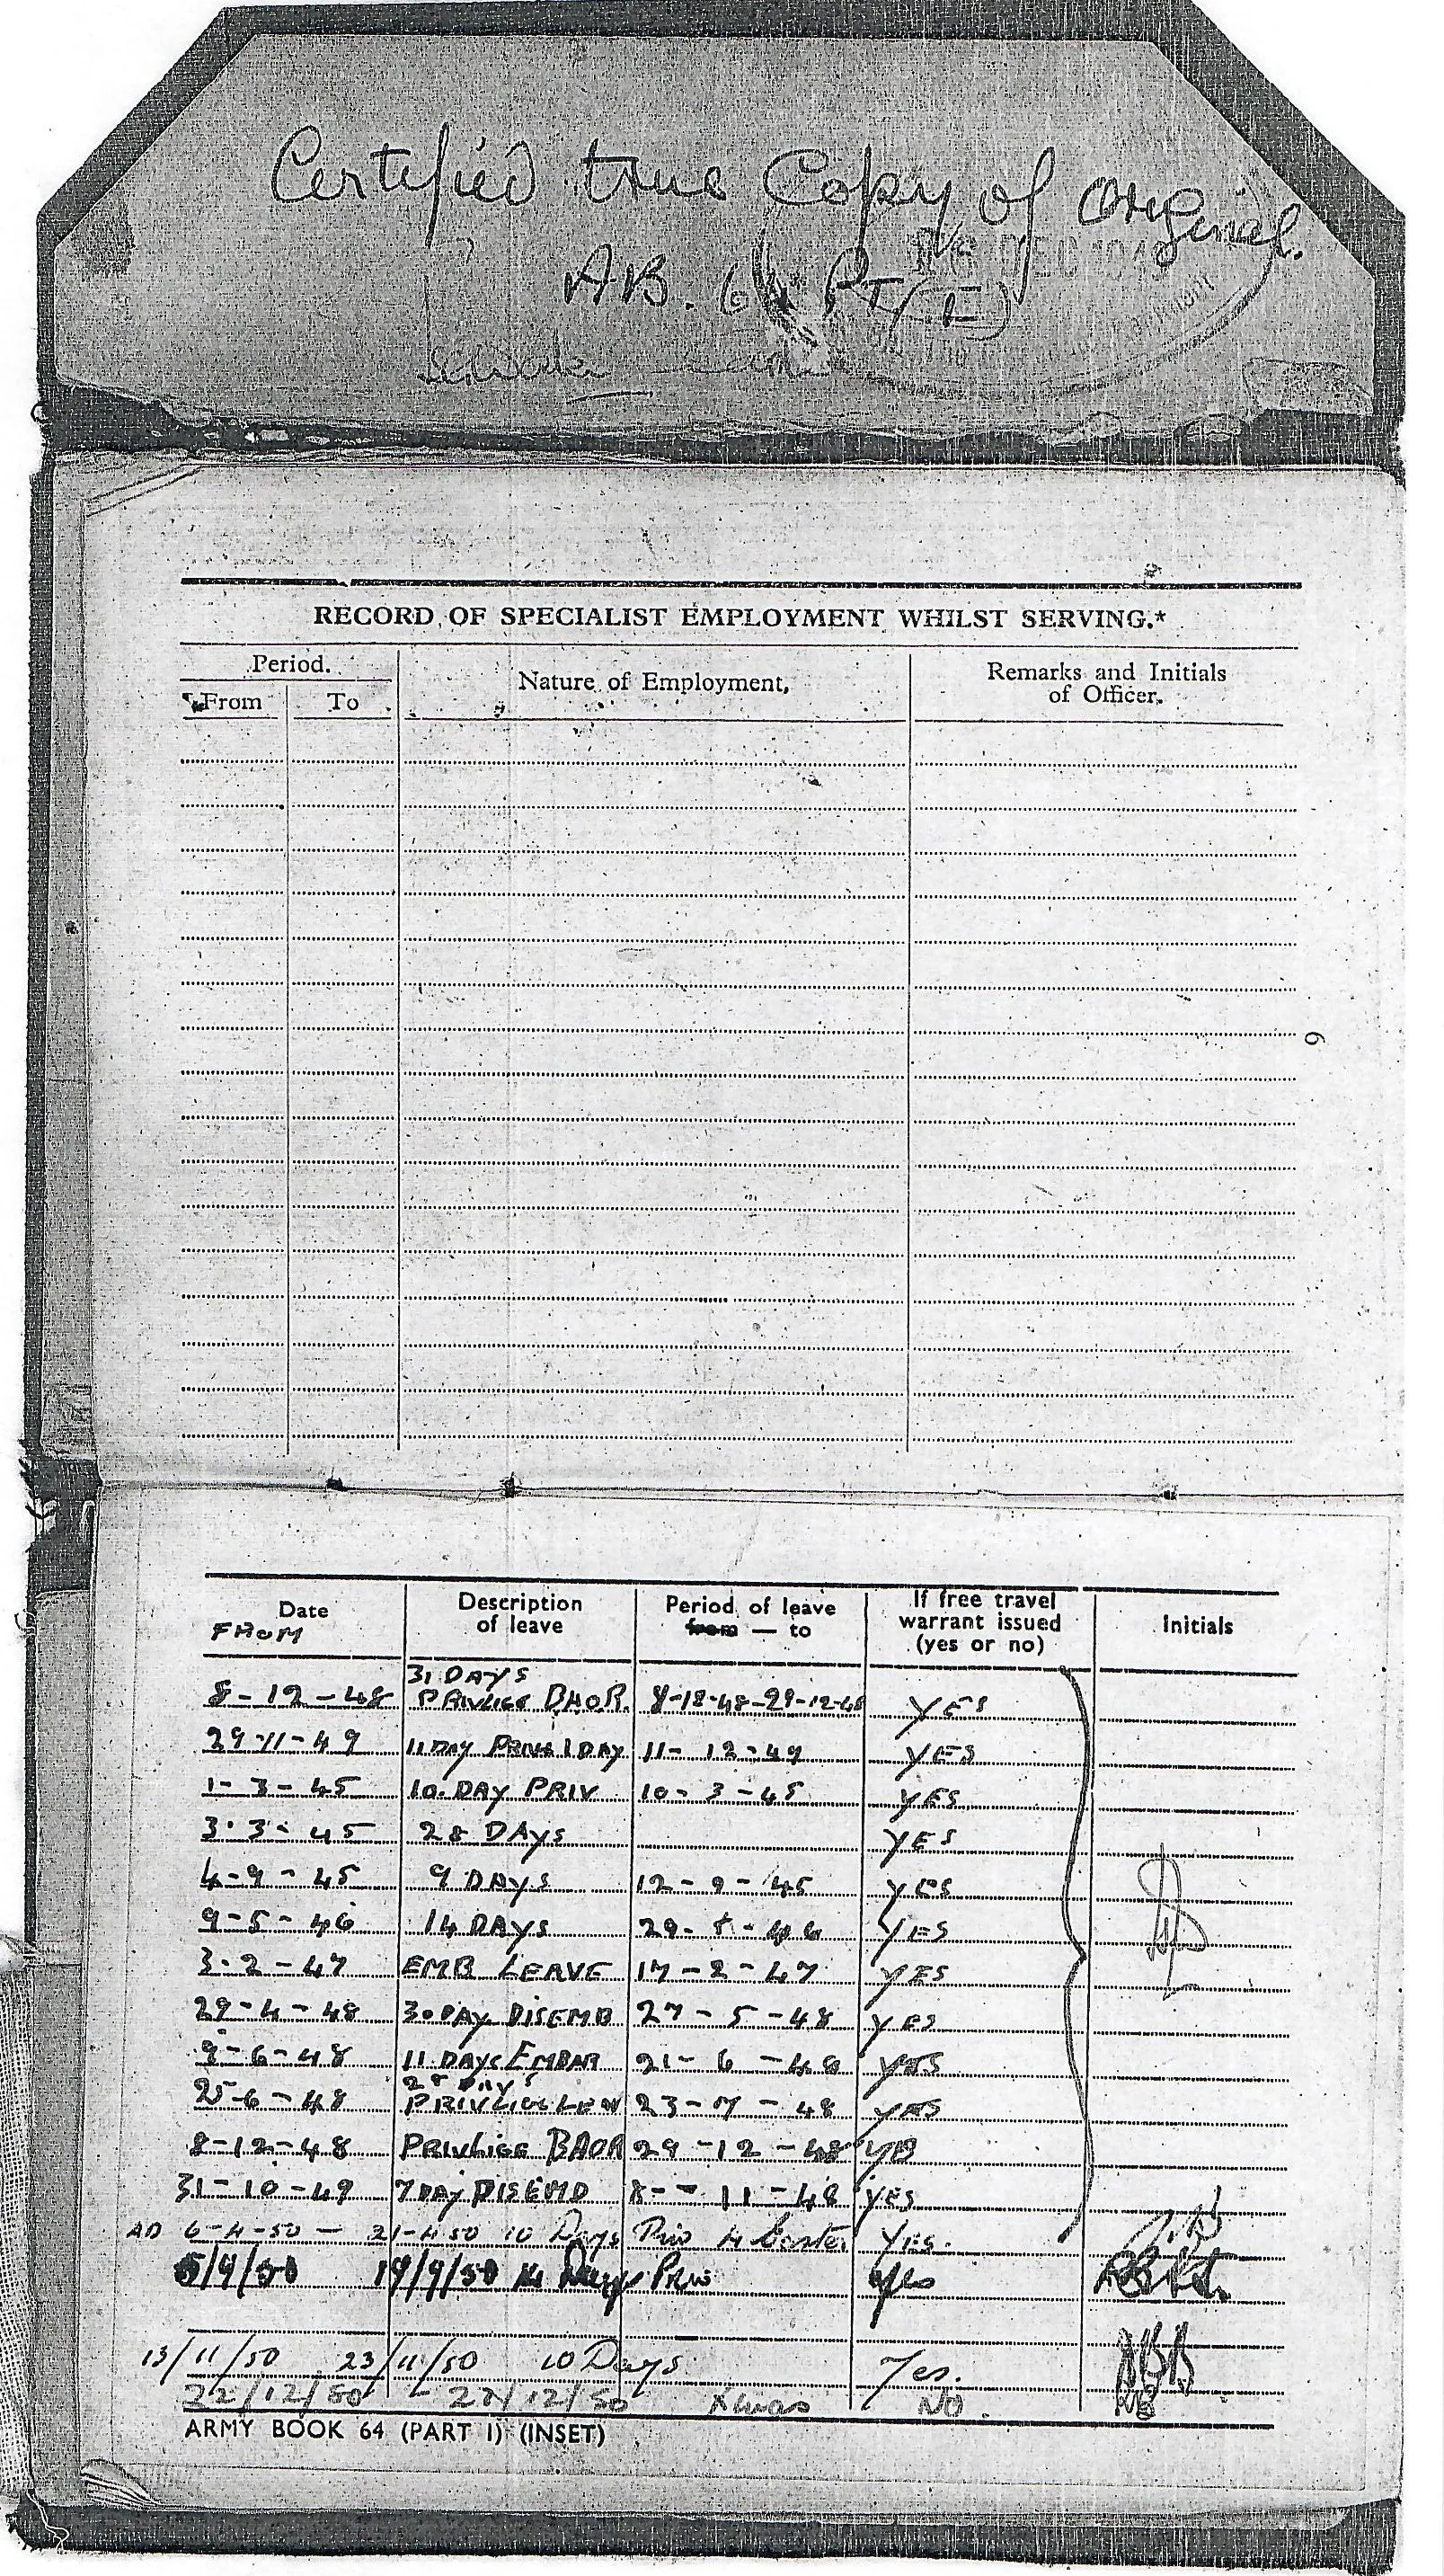 Certified true Copy of Original.
AB. 64 PT (I)
DEC 194
RECORD OF SPECIALIST EMPLOYMENT WHILST SERVING.*
Period. Nature of Employment, Remarks and Initials
From To of Officer.
6
Date Description Period of leave If free travel Initials
FROM of leave from — to warrant issued
(yes or no)
31 DAYS
8-12-48 PRIVLIGE B.A.O.R. 8-12-48-29-12-48 YES
29-11-49 11 DAY PRIV 1 DAY 11-12-49 YES
1-3-45 10.DAY PRIV 10-3-45 YES
3.3-45 28 DAYS YES
4-9-45 9 DAYS 12-9-45 YES
9-5-46 14 DAYS YES
3-2-47 EMB LEAVE 17-2-47 YES
29-4-48 30 DAY DISEMB 27-5-48 YES
9-6-48 11 DAYS EMBAR 21-6-48 YES
28 DAYS
25-6-48 23-7-48 YES
8-12-48 PRIVLIGE BAOR 29-12-48 YES
31-10-49 7 DAY DISEMB 8--11-48 YES
AD 6-4-50 — 21-4-50 10 Days Priv 4 Easter YES.
5/9/50 19/9/50 14 Days Priv Yes
13/11/50 23/11/50 10 Days Yes.
22/12/50 - 27/12/50 Xmas NO.
ARMY BOOK 64 (PART I) (INSET)